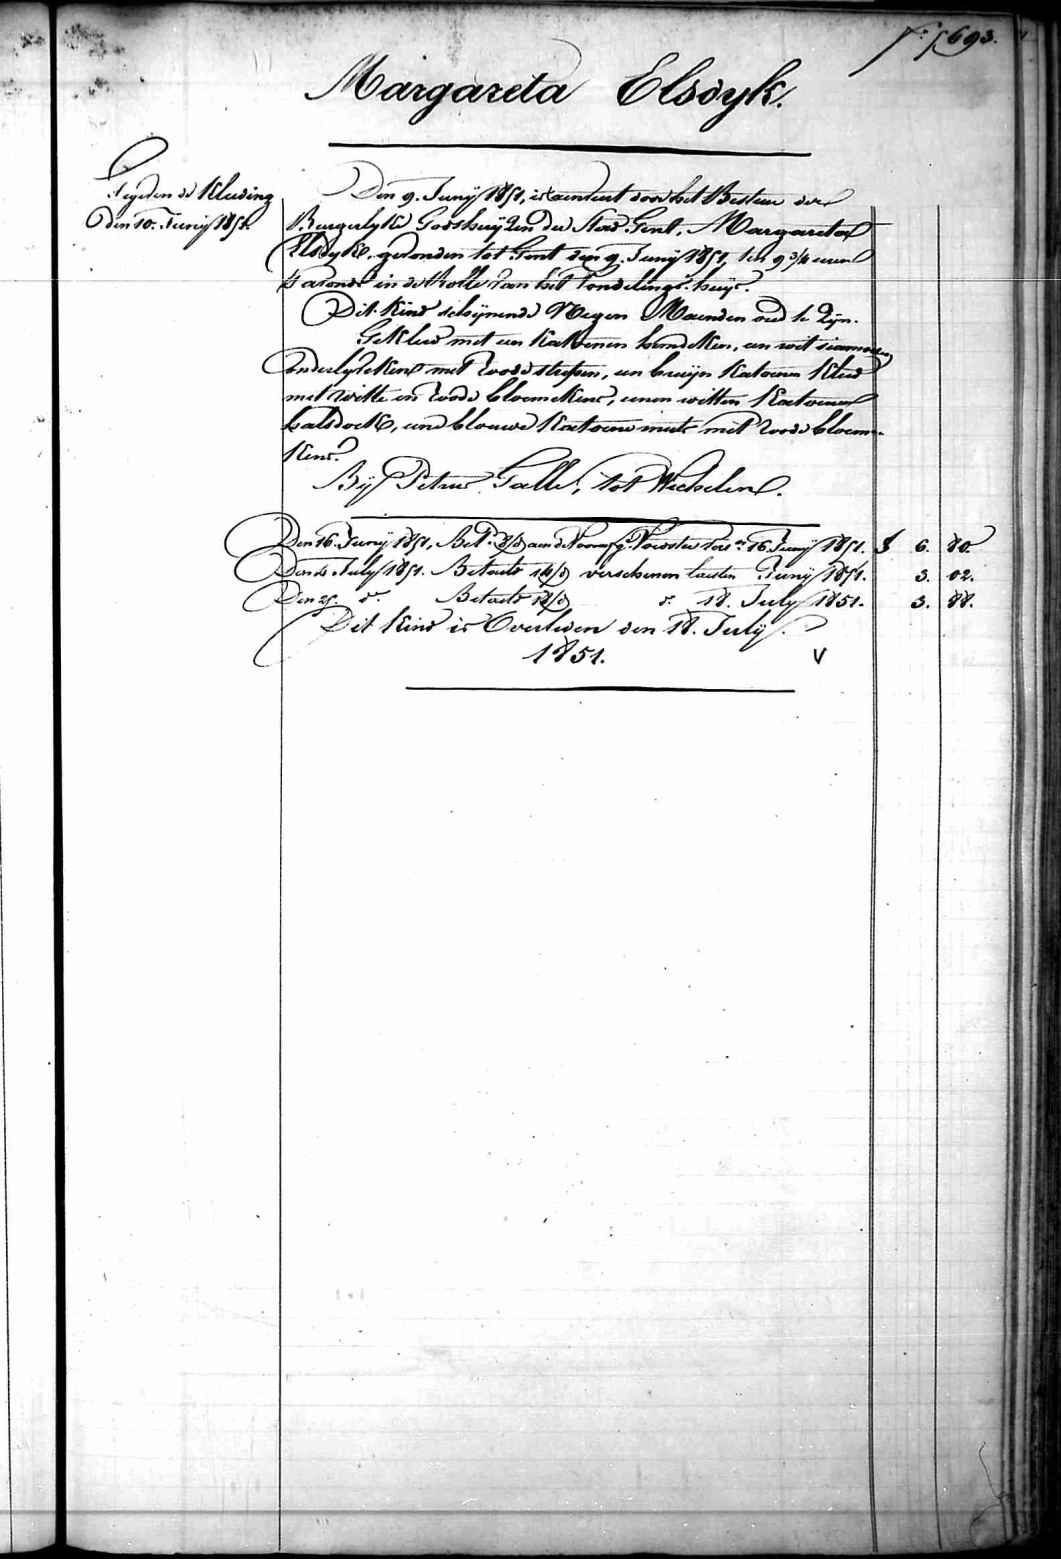 f.° 693.
Margareta Elsdyk.
Gegeven de Kleeding
den 10. Junij 1851.
Den 9. Junij 1851, is aenveert door het Bestuer der
Burgerlyke Godshuyzen der Stad Gent, Margareta
Elsdyk, gevonden tot Gent den 9. Junij 1851, ten 9 3/4 uren
s'avonds in de Rolle van het Vondelings-huys.
Dit Kind schijnende Negen Maenden oud te Zijn.
Gekleed met een Katoenen hemdeken, een wit siamoisen
onderlyfeken met roode strepen, een bruijn Katoenen Kleed
met witte en roode bloemekens, eenen witten Katoenen
halsdoek, eene blouwe Katoene muts met roode bloeme-
kens.
Bij Petrus Galle, tot Wichelen.
Den 16. Junij 1851, Bet. aen de Voorsz. Voedster 16. Junij 1851. f 6. 80.
Den 4. July 1851. Betaelt 14/d verschenen lasten Junij 1851. 3. 02.
Den 25. d.° Betaelt 18/d d.° 18. July 1851. 3. 88.
Dit Kind is Overleden den 18. Julij
1851. V